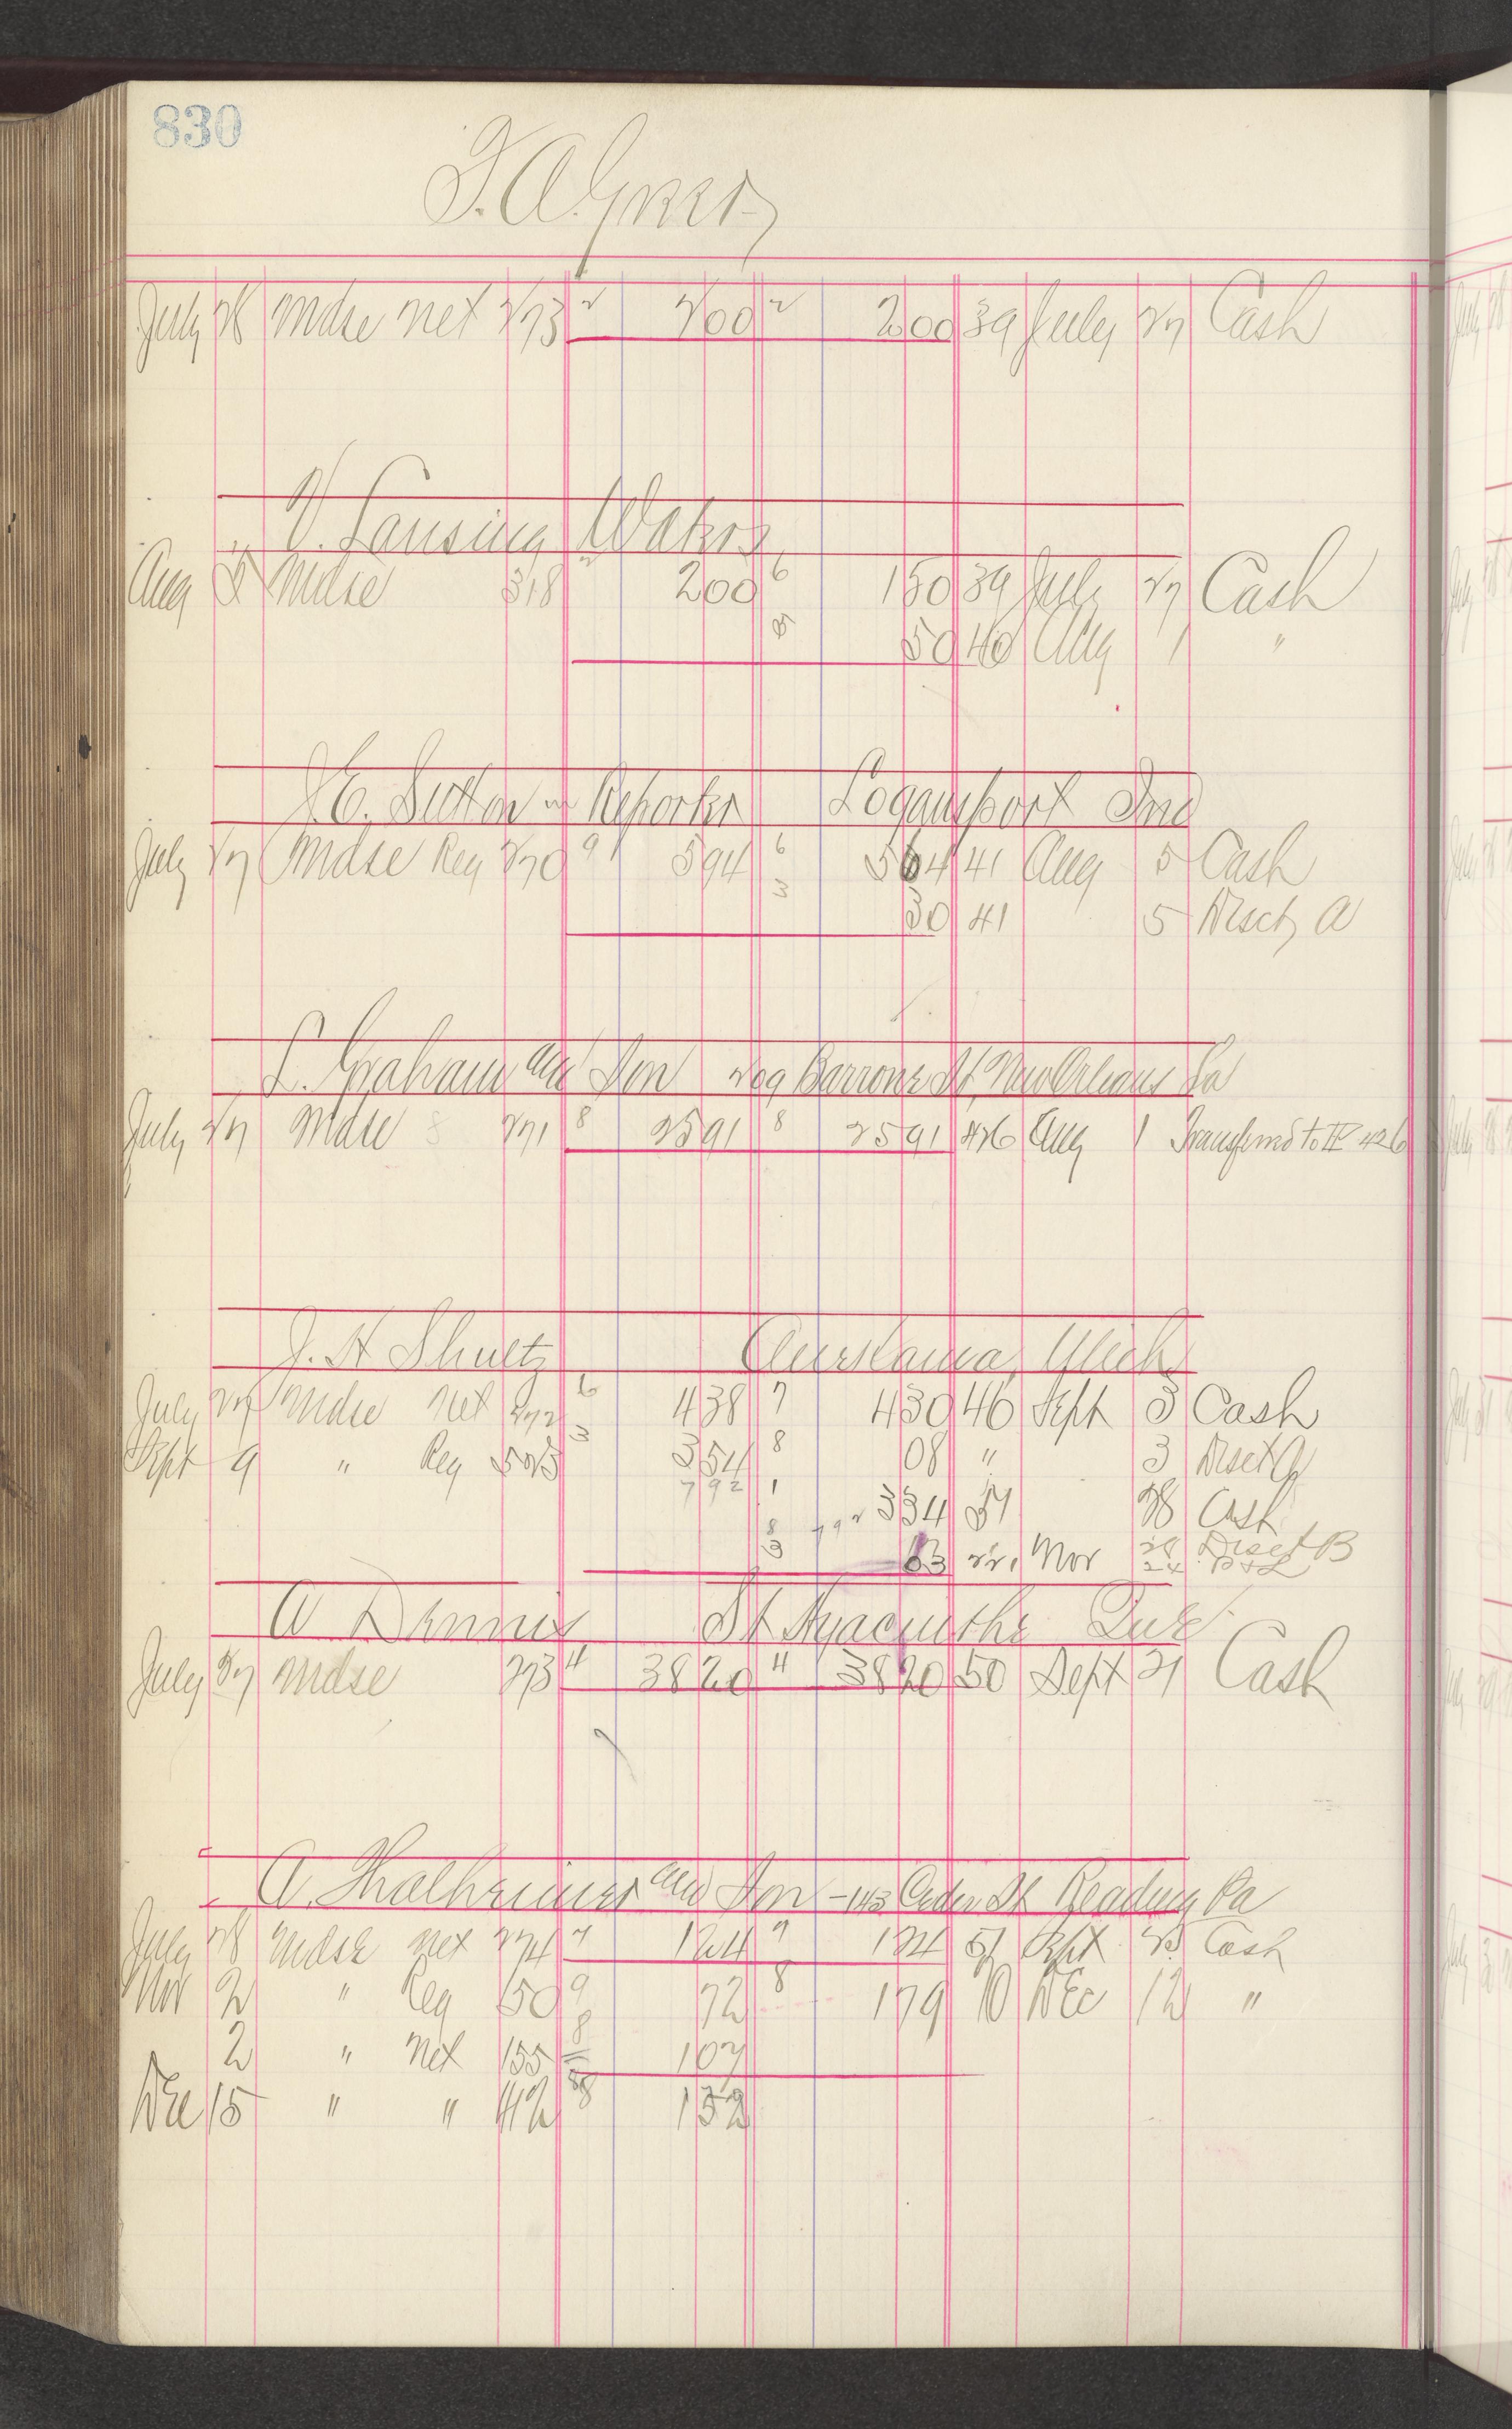 830
July 28 Mdse net 273 2 200 2 200 39 July 27 Cash
V. Lansing
Aug 5 Mdse 318 200 6 150 39 July 27 Cash
3 50 40 Aug 1 "
J. E. Sutton Reporter Logansport Ind
July 27 Mdse Reg 270 9 594 6 564 41 Aug 5 Cash
3 30 41 5 Disct A
L. Graham and Son 209 Barrone St, New Orleans La
July 27 Mdse 8 271 8 2591 8 2591 426 Aug 1 Transferred to IV 426
J. H Shultz Mich
July 27 Mdse Net 272 6 3 438 7 430 46 Sept 3 Cash
Sept 9 " Reg 354 8 08 " 3 Disct
792 1 792 334 51 28 Cash
8 3 221 Nov Disct B
A Dennis St Hyacinthe Que
July 27 Mdse 273 4 3820 4 3820 50 Sept 21 Cash
A. Thalheimer and Son - 143 Cedar St Reading Pa
July 28 Mdse Net 274 7 124 7 124 51 Sept Cash
Nov 2 " Reg 150 9 72 8 179 10 Dec 12 "
2 " Net 155 8 107
Dec 15 " " 412 8 132